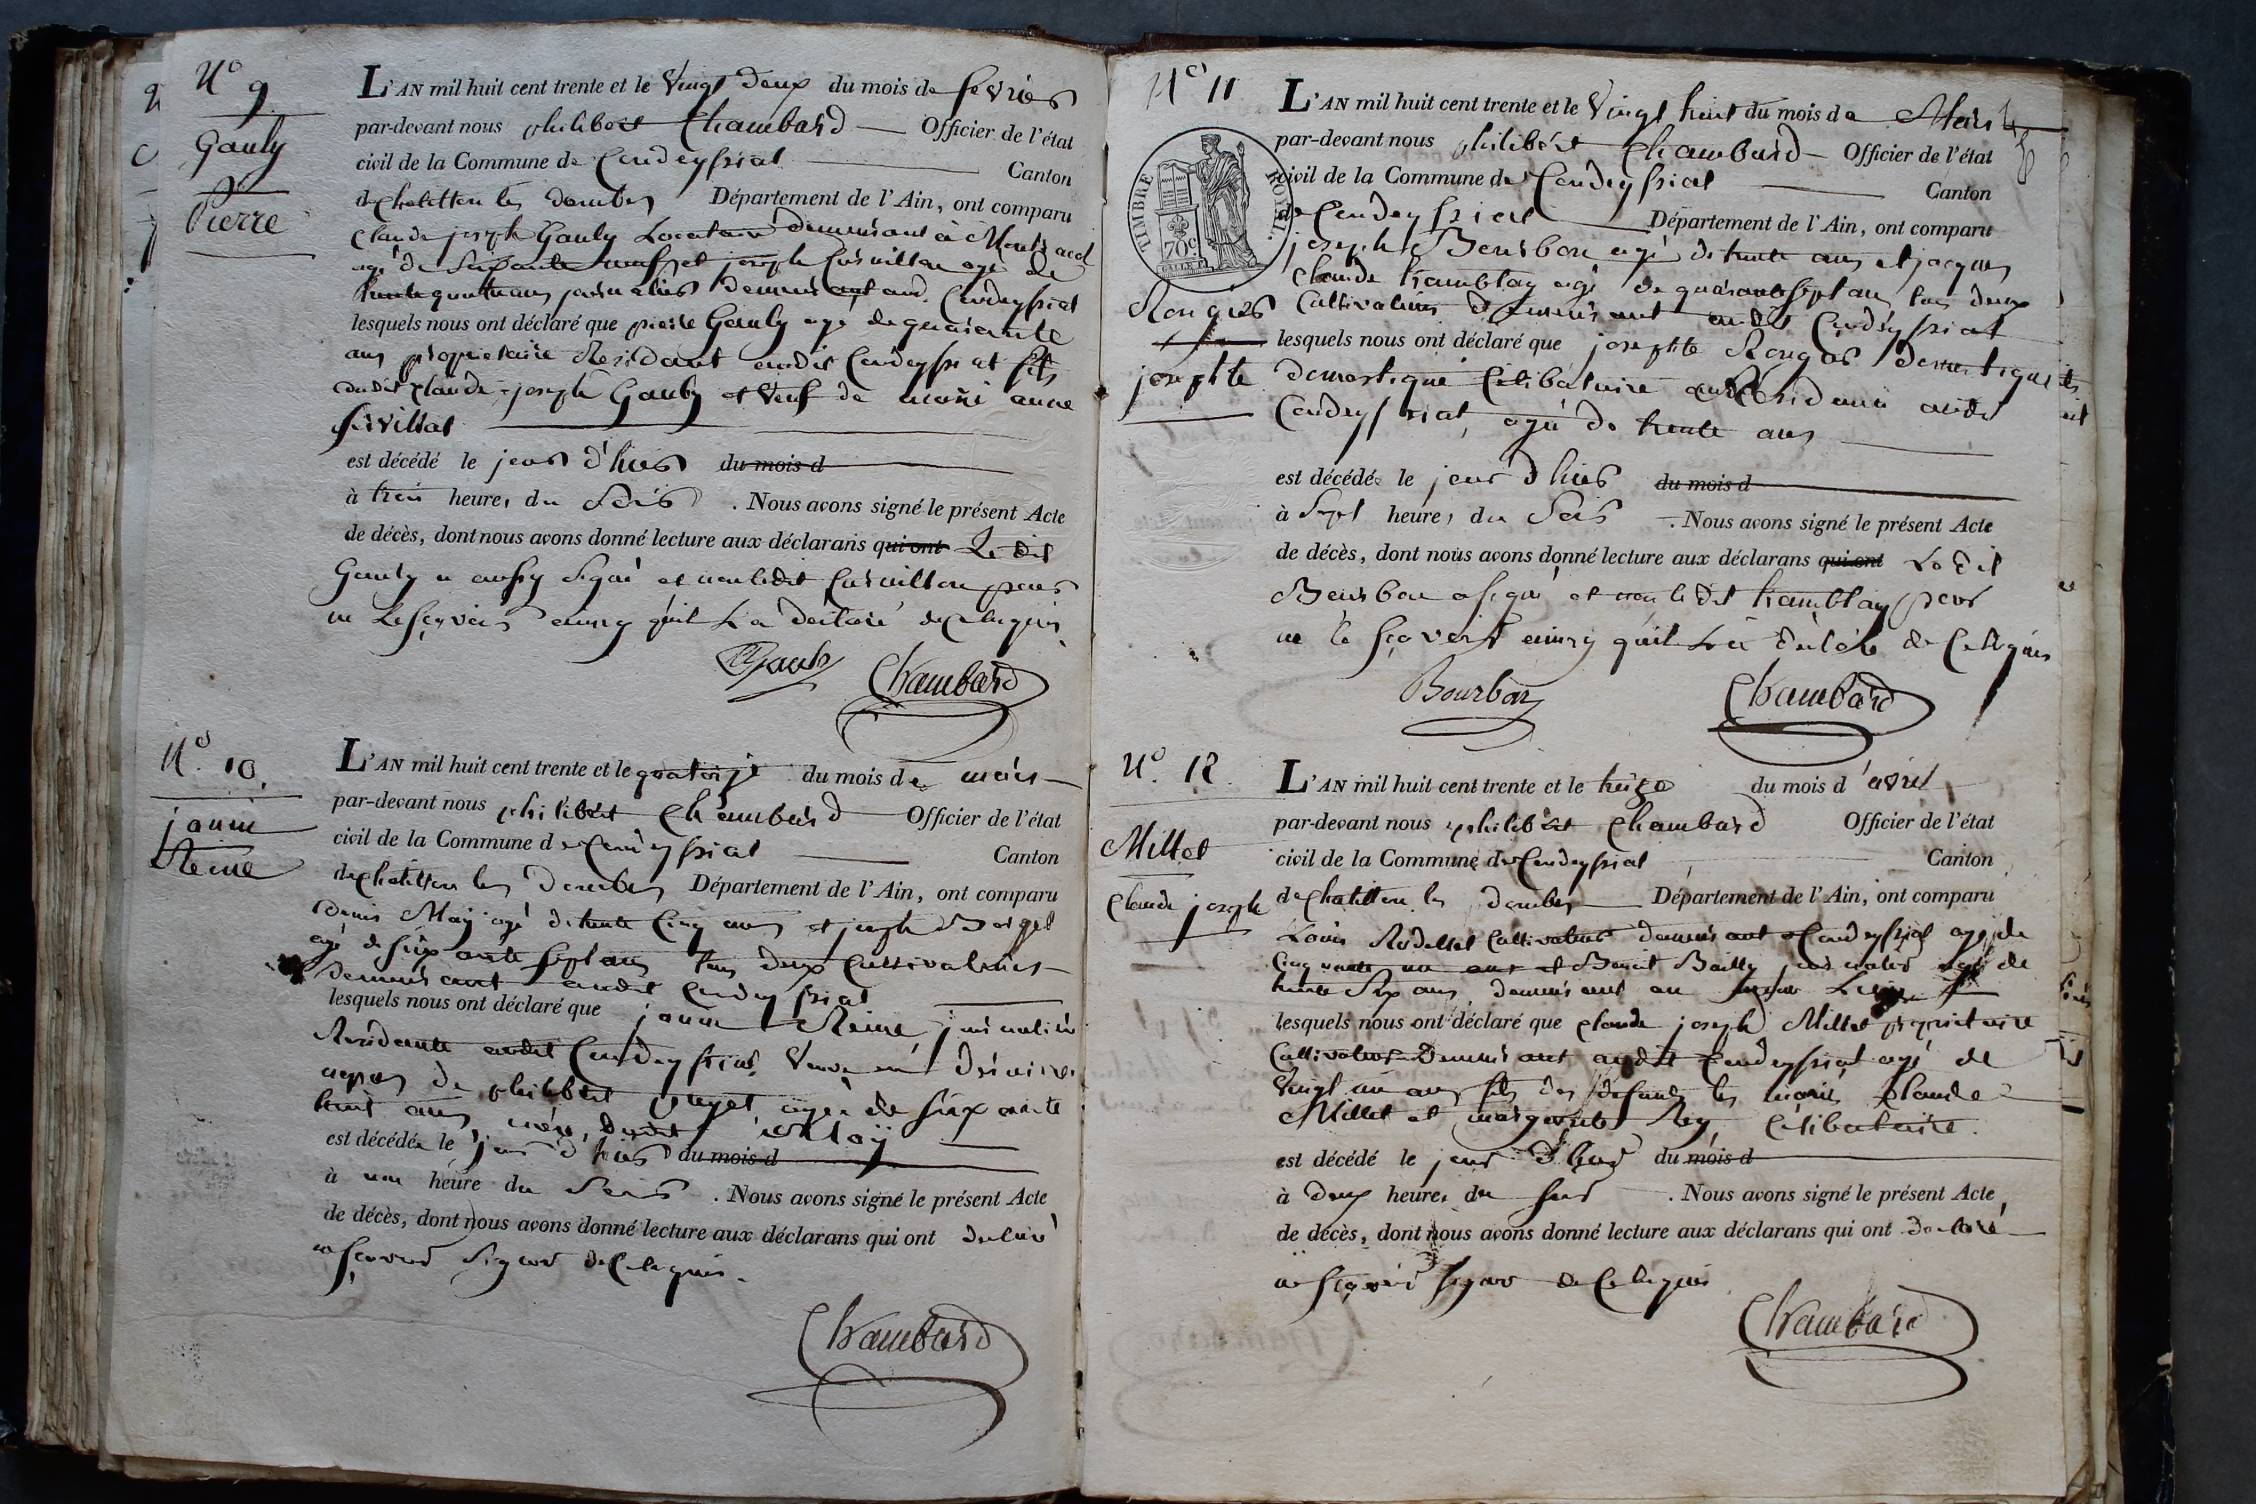 N° 9
Gauly
Pierre
L'AN mil huit cent trente et le Vingt deux du mois de fevrier
par-devant nous philibert Chambard Officier de l'état
civil de la Commune de Condeyssiat Canton
de Chatillon les dombes Département de l'Ain, ont comparu
Claude joseph Gauly Locataire demeurant à
agé de Soixante neuf et joseph agé de
trente quatre ans journalier demeurant aud. Condeyssiat
lesquels nous ont déclaré que pierre Gauly agé de quarante
ans propriétaire Résidant audit Condeyssiat fils
dudit Claude joseph Gauly et Veuf de marie anne
est décédé le jour d'hier du mois d
à trois heures du Soir . Nous avons signé le présent Acte
de décès, dont nous avons donné lecture aux déclarans qui ont Le dit
Gauly a aussy Signé et non ledit pour
ne Le Sçavoir ainsy qu'il La déclaré de Ce Requis
Gauly Chambard
N° 10.
janin
Reine
L'AN mil huit cent trente et le quatorze du mois de mars
par-devant nous philibert Chambard Officier de l'état
civil de la Commune de Condeyssiat Canton
de Chatillon les Dombes Département de l'Ain, ont comparu
Denis May agé de trente Cinq ans et joseph
agé de Soixante Sept ans tous deux Cultivateurs
demeurant audit Condeyssiat
lesquels nous ont déclaré que janin Reine, journalière
Residante audit Condeyssiat, Veuve en
de philibert agée de Soixante
huit ans, dudit May
est décédée le jour d'hier du mois d
à une heure du Soir . Nous avons signé le présent Acte
de décès, dont nous avons donné lecture aux déclarans qui ont declaré
ne Sçavoir Signer de Ce Requis.
Chambard
N° 11
TIMBRE ROYAL.
70c
Rongier
josephte
L'AN mil huit cent trente et le Vingt huit du mois de Mars
par-devant nous philibert Chambard Officier de l'état
civil de la Commune de Condeyssiat Canton
de Condeyssiat Département de l'Ain, ont comparu
joseph Bourbon agé de trente ans et jacques
Claude tramblay agé de quarante Sept ans tous deux
Cultivateurs Demeurant audit Condeyssiat
lesquels nous ont déclaré que josephte Rongier Domestique
domestique Célibataire Résidante audit
Condeyssiat, agée de trente ans
est décédée le jour d'hier du mois d
à Sept heures du Soir . Nous avons signé le présent Acte
de décès, dont nous avons donné lecture aux déclarans qui ont Le dit
Bourbon a signé et non le dit tramblay pour
ne le Sçavoir ainsy qu'il La declaré de Ce Requis
Bourbon Chambard
N° 12
Millet
Claude joseph
L'AN mil huit cent trente et le treize du mois d'avril
par-devant nous philibert Chambard Officier de l'état
civil de la Commune de Condeyssiat Canton
de Chatillon les dombes Département de l'Ain, ont comparu
Louis Rodettet Cultivateur demeurant a Condeyssiat agé de
Cinquante un ans et Benoit Bailly journalier agé de
trente Six ans demeurant au
lesquels nous ont déclaré que Claude joseph Millet propriétaire
Cultivateur Demeurant audit Condeyssiat agé de
Vingt un ans fils des défunts les mariés Claude
Millet et marguerite Rey, Célibataire.
est décédé le jour d'hier du mois d
à deux heures du Soir . Nous avons signé le présent Acte
de décès, dont nous avons donné lecture aux déclarans qui ont declaré
ne Sçavoir Signer de Ce Requis
Chambard